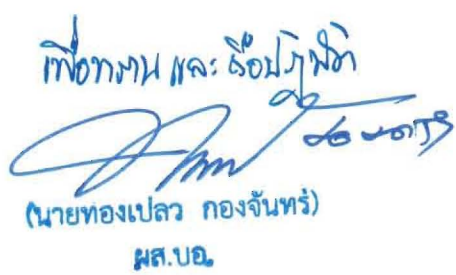 เพื่อทราบ และ ถือปฏิบัติ
(นายทองเปลว กองจันทร์)
ผส.บอ.